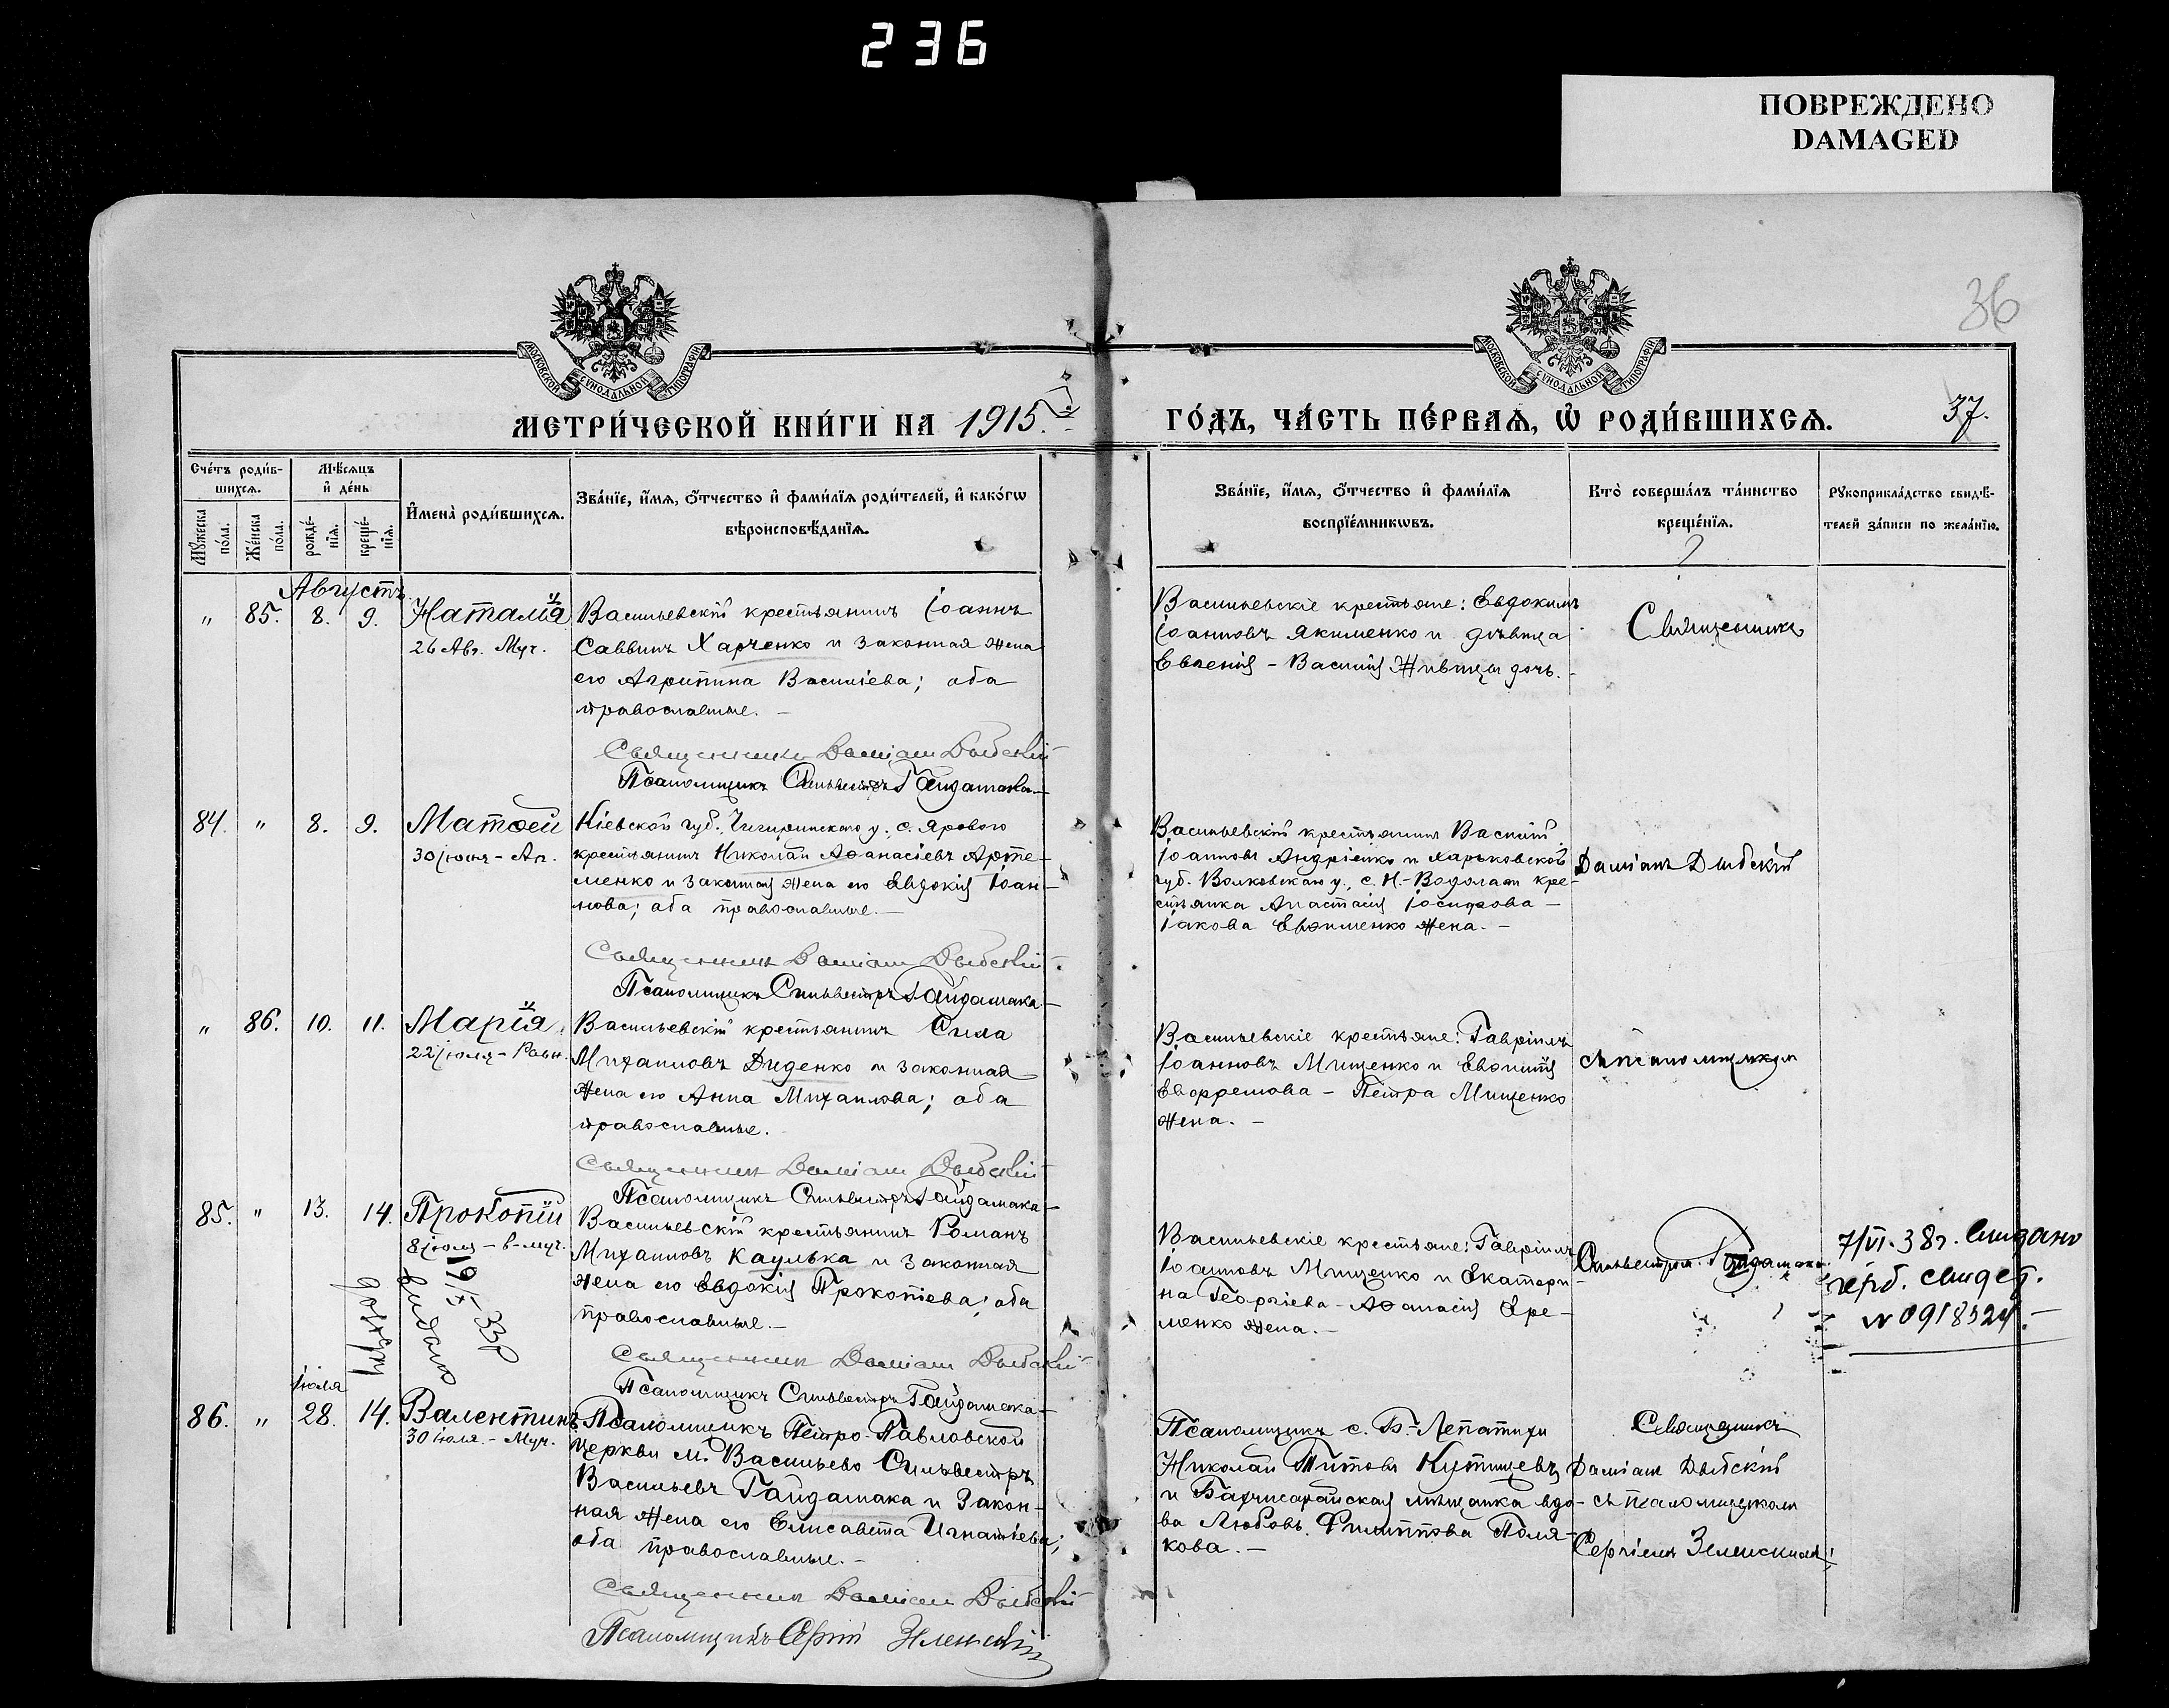 236
ПОВРЕЖДЕНО
DAMAGED
36
МОСКОВСКОЙ СѴНОДАЛЬНОЙ ТИПОГРАФІИ
МОСКОВСКОЙ СѴНОДАЛЬНОЙ ТИПОГРАФІИ
МЕТРИ́ЧЕСКОЙ КНИ́ГИ НА 1915.
ГО́ДЪ, ЧА́СТЬ ПЕ́РВАѦ, Ѡ҆ РОДИ́ВШИХСѦ. 37.
Сче́тъ роди́в-
шихсѧ.
Мꙋ́жеска по́ла.
Же́нска по́ла.
Мѣ́сѧцъ
и҆ де́нь
рожде́-нїѧ.
креще́-нїѧ.
И҆мена̀ роди́вшихсѧ.
Зва́нїе, и҆́мѧ, ѻ҆́тчество и҆ фами́лїѧ роди́телей, и҆ како́гѡ
вѣроисповѣ́данїѧ.
Зва́нїе, и҆́мѧ, ѻ҆́тчество и҆ фами́лїѧ
воспрїе́мникѡвъ.
Кто̀ соверша́лъ та́инство
креще́нїѧ.
Рꙋкоприкла́дство свидѣ́-
телей за́писи по жела́нїю.
Августъ
„ 85. 8. 9. Наталія
26 Авг. Муч.
Васильевскій крестьянинъ Іоаннъ
Саввинъ Харченко и законная жена
его Агрипина Василіева; оба
православные. —
Священникъ Даміанъ Дыбскій
Псаломщикъ Сильвестръ Гайдамака
Васильевскіе крестьяне: Евдокимъ
Іоанновъ Якименко и дѣвица
Евгенія - Василія Живицы дочь. -
Священникъ
84. „ 8. 9. Матѳей
30 іюня - Ап.
Кіевской губ. Чигиринскаго у. с. Яроваго
крестьянинъ Николай Аѳанасіевъ Арте-
менко и законная жена его Евдокія Іоан-
нова; оба православные. —
Священникъ Даміанъ Дыбскій
Псаломщикъ Сильвестръ Гайдамака
Васильевскій крестьянинъ Василій
Іоанновъ Андріенко и Харьковской
губ. Волковскаго у., с. Н.-Водолаги кре-
стьянка Анастасія Іосифова —
Іакова Евѳименко жена. -
Даміанъ Дыбскій
„ 86. 10. 11. Марія
22 іюля - Равн.
Васильевскій крестьянинъ Сила
Михаиловъ Диденко и законная
жена его Анна Михаилова; оба
православные.
Священникъ Даміанъ Дыбскій
Псаломщикъ Сильвестръ Гайдамака
Васильевскіе крестьяне: Гавріилъ
Іоанновъ Мищенко и Евѳимія
Евфремова - Петра Мищенко
жена. -
съ псаломщикомъ
85. „ 13. 14. Прокопій
8 іюля - в-муч.
19/X-33р
выдано
Васильевскій крестьянинъ Романъ
Михаиловъ Каулька и законная
жена его Евдокія Прокопіева; оба
православные. —
Священникъ Даміанъ Дыбскій
Псаломщикъ Сильвестръ Гайдамака
Васильевскіе крестьяне: Гавріилъ
Іоанновъ Мищенко и Екатери-
на Георгіева - Аѳанасія Ере-
менко жена. -
Сильвестромъ Гайдамака
7/VI. 38 г.
герб. свидет.
N 0918524. -
Іюля
86. „ 28. 14. Валентинъ
30 іюля. - Муч.
Псаломщикъ Петро-Павловской
церкви м. Васильево Сильвестръ
Васильевъ Гайдамака и закон-
ная жена его Елисавета Игнатіева;
оба православные. -
Священникъ Даміанъ Дыбскій
Псаломщикъ Сергій Зеленскій
Псаломщикъ с. Б.-Лепатихи
Николай Титовъ Кутищевъ
и Бахчисарайская мѣщанка вдо-
ва Любовь Филиппова Поля-
кова. -
Священникъ
Даміанъ Дыбскій
съ псаломщикомъ
Сергіемъ Зеленскимъ